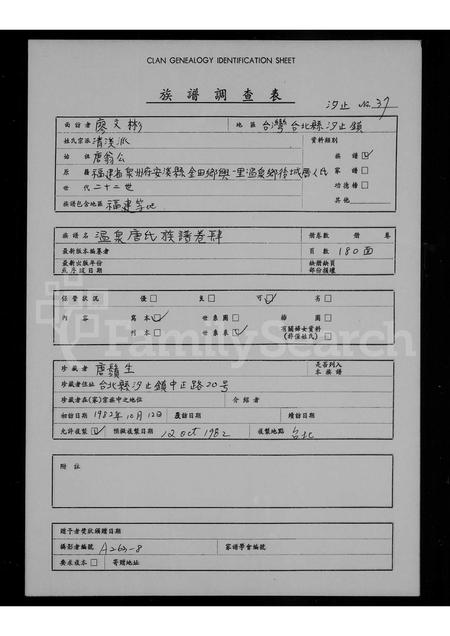 CLAN GENEALOGY IDENTIFICATION SHEET
族譜調查表
汐止 No. 37
面訪者 廖文彬 地區 台灣台北縣汐止鎮
姓氏宗派 清溪派 資料類別
始祖 唐翁公 族譜 ☑
原籍 福建省泉州府安溪縣金田鄉興一里溫泉鄉 唐人氏 家譜 □
世代 二十二世 功德榜 □
族譜包含地區 福建等地 其他
族譜名 溫泉唐氏族譜卷肆 冊卷數 冊 卷
最新版本編纂者 頁數 180面
最新出版年份 缺冊缺頁
或序跋日期 部份損壞
保管狀況 優 □ 良 □ 可 ☑ 劣 □
內容 寫本 ☑ 世系圖 □ 插圖 □
刊本 □ 世系表 ☑ 有關婦女資料 □
(非僅姓氏)
珍藏者 唐鬚生 是否列入
本族譜
珍藏者住址 台北縣汐止鎮中正路20号
珍藏者在(家)宗族中之地位 介紹者
初訪日期 1982年10月12日 續訪日期
允許複製 ☑ 預擬複製日期 12 Oct 1982 複製地點 台北
附註
贈予者獎狀頒贈日期
攝影者編號 A263-8 家譜學會編號
要求複本 □ 寄贈地址
FamilySearch